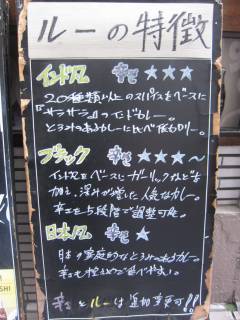 ルーの特徴
インド風 辛さ ★★★
20種類以上のスパイスをベースに
『サラサラ』のインドカレー。
とろみのあるカレーに比べ後もひかない。
ブラック 辛さ ★★★〜
インド風をベースにガーリックなどを
加え、深みが増した人気なカレー。
辛さも5段階で調整可能。
日本風 辛さ ★
日本の家庭的なとろみのあるカレー。
辛さも控えめで食べやすい。
辛さとルーは追加変更可!!
SHI